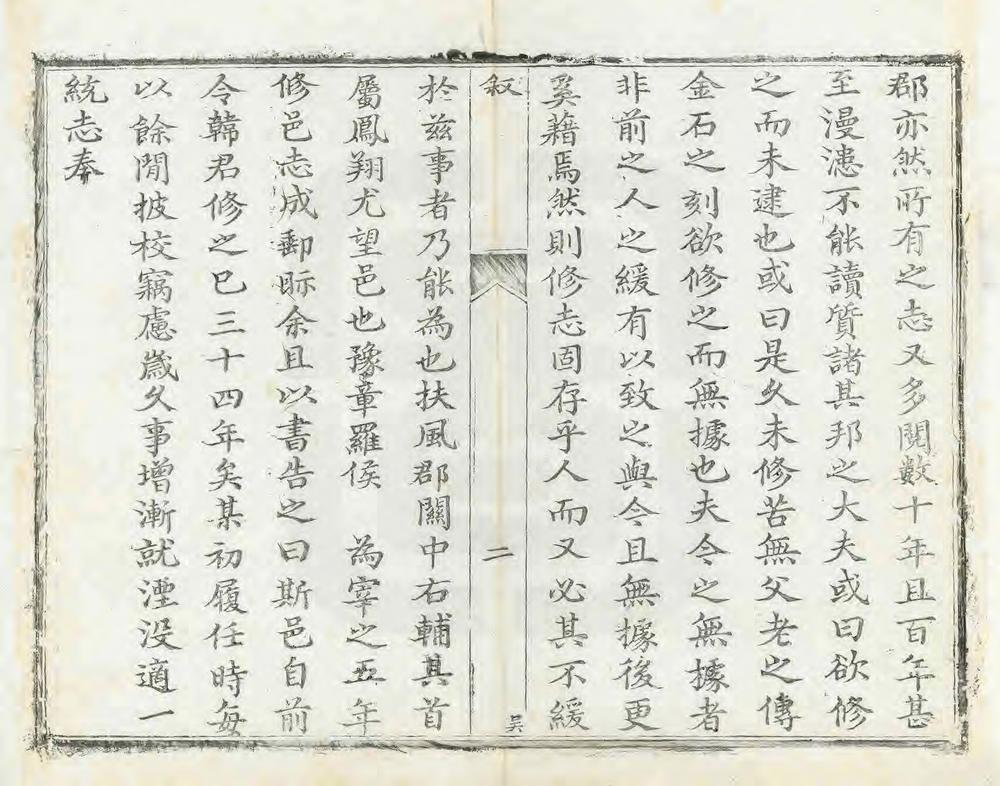 郡亦然所有之志又多閱數十年且百年甚
至漫漶不能讀質諸其邦之大夫或曰欲修
之而未逮也或曰是久未修苦無父老之傳
金石之刻欲修之而無據也夫令之無據者
非前之人之緩有以致之與今且無據後更
奚藉焉然則修志固存乎人而又必其不緩
叙
二
吴
於茲事者乃能為也扶風郡關中右輔其首
屬鳳翔尤望邑也豫章羅侯 為宰之五年
修邑志成郵眎余且以書告之曰斯邑自前
令韓君修之已三十四年矣某初履任時每
以餘閒披校竊慮歲久事增漸就湮没適一
統志奉